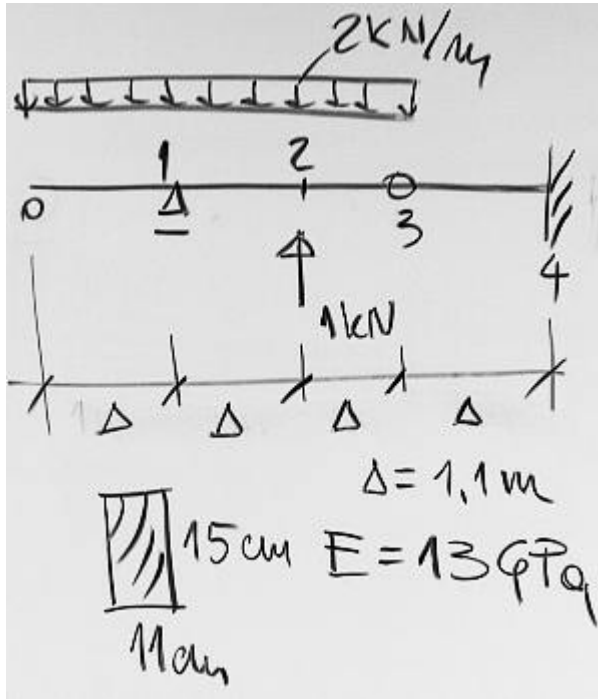 2KN/m
1 2
0 3
4
1kN
Δ Δ Δ Δ
Δ = 1,1m
15cm E = 13GPa
11cm